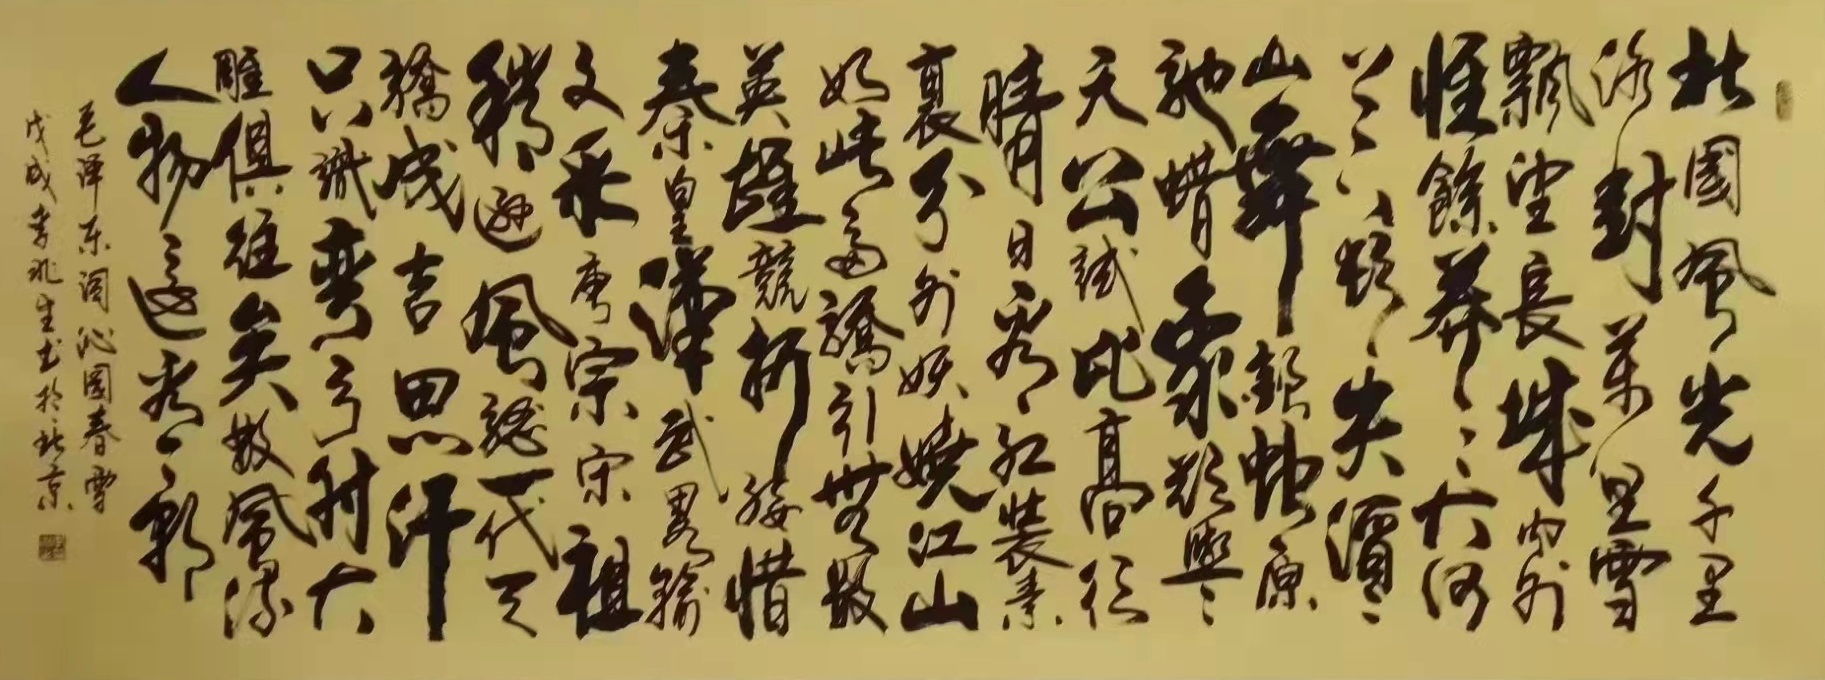 北國風光千里
冰封萬里雪
飄望長城內外
惟餘莽々大河
上下頓失滔々
山舞銀蛇原
馳蜡象欲與
天公試比高須
晴日看紅裝素
裹分外妖嬈江山
如此多嬌引無數
英雄競折腰惜
秦皇漢武略輸
文采唐宗宋祖
稍遜風騷一代天
驕成吉思汗
只識彎弓射大
雕俱往矣數風流
人物還看今朝
毛泽东词沁園春雪
戊戌李兆生书於北京